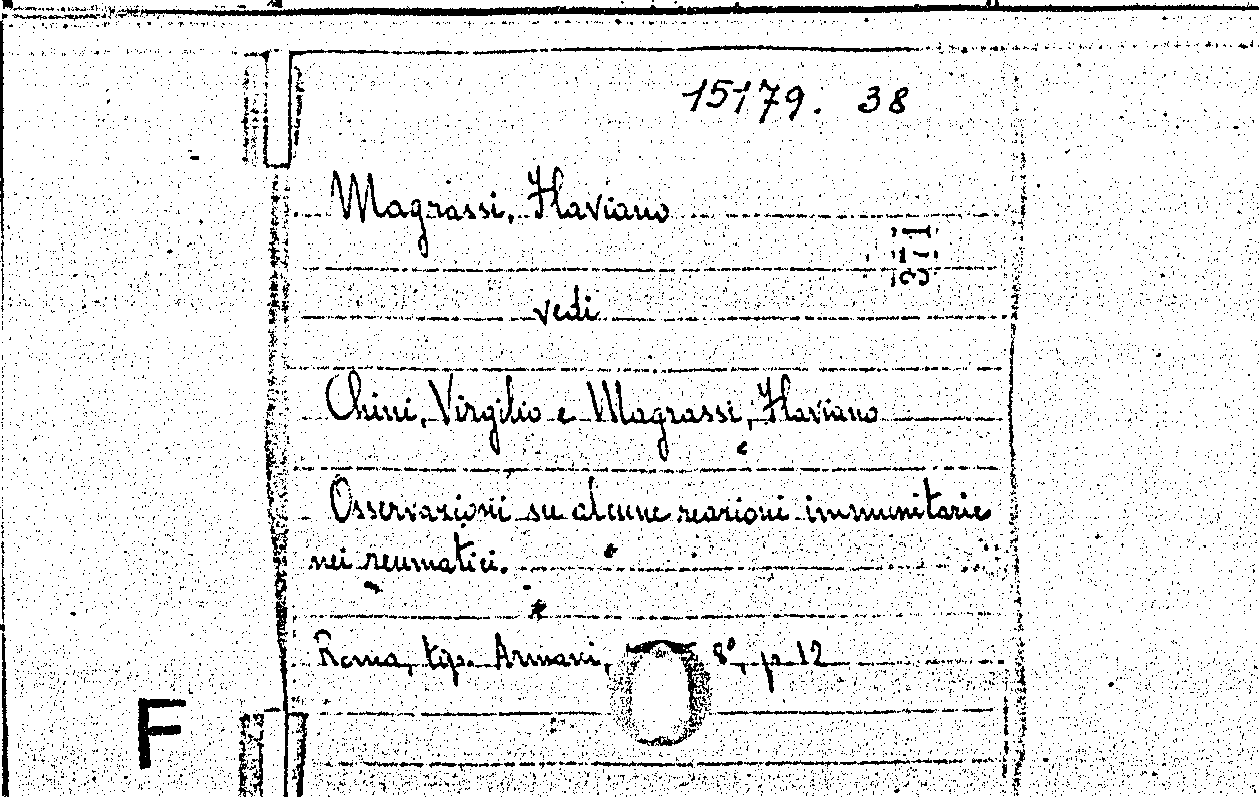 15179. 38
Magrassi, Flaviano
vedi
Chini, Virgilio e Magrassi, Flaviano
Osservazioni su alcune reazioni immunitarie
nei reumatici.
Roma, tip. Armani, 8°, p. 12
F